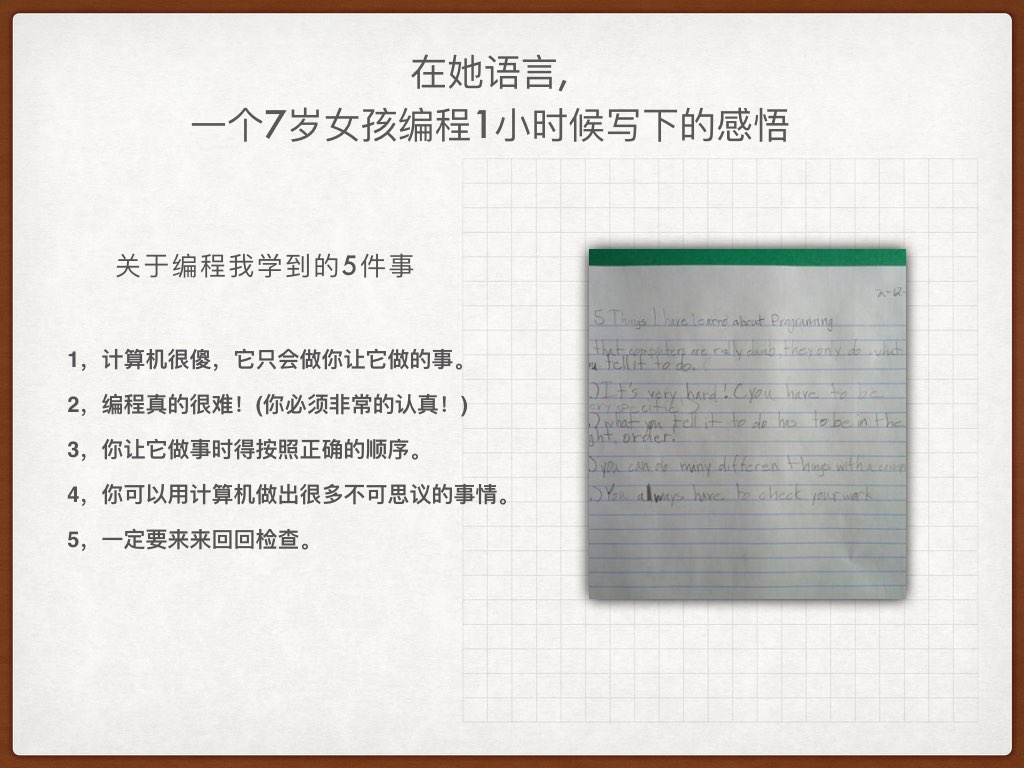 在她语言,
一个7岁女孩编程1小时候写下的感悟
关于编程我学到的5件事
1，计算机很傻，它只会做你让它做的事。
2，编程真的很难！(你必须非常的认真！)
3，你让它做事时得按照正确的顺序。
4，你可以用计算机做出很多不可思议的事情。
5，一定要来来回回检查。
5 Things I have learnd about Programming
that computers are really dumb, they only do what
u tell it to do.
)It's very hard! (you have to be
ery specific)
) what you tell it to do has to be in the
ght, order.
) you can do many differen things with a
.) You always have to check your work